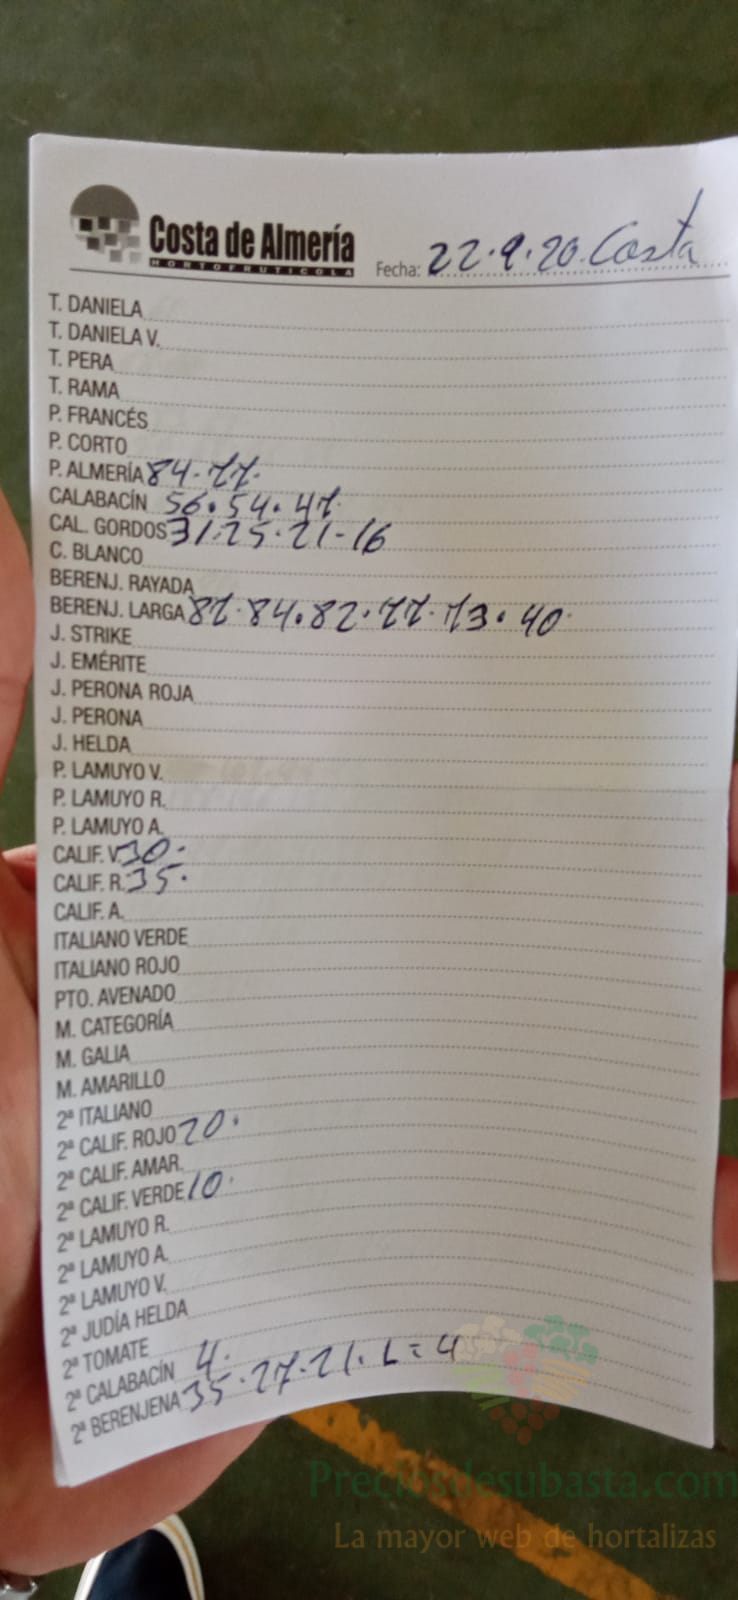 Costa de Almería
HORTOFRUTICOLA
Fecha: 22.9.20. Costa
T. DANIELA
T. DANIELA V.
T. PERA
T. RAMA
P. FRANCÉS
P. CORTO
P. ALMERÍA 84.77.
CALABACÍN 56.54.47.
CAL. GORDOS 31.25.21-16
C. BLANCO
BERENJ. RAYADA
BERENJ. LARGA 87.84.82.77.73.40.
J. STRIKE
J. EMÉRITE
J. PERONA ROJA
J. PERONA
J. HELDA
P. LAMUYO V.
P. LAMUYO R.
P. LAMUYO A.
CALIF. V. 30.
CALIF. R. 35.
CALIF. A.
ITALIANO VERDE
ITALIANO ROJO
PTO. AVENADO
M. CATEGORÍA
M. GALIA
M. AMARILLO
2ª ITALIANO
2ª CALIF. ROJO 20.
2ª CALIF. AMAR.
2ª CALIF. VERDE 10.
2ª LAMUYO R.
2ª LAMUYO A.
2ª LAMUYO V.
2ª JUDÍA HELDA
2ª TOMATE
2ª CALABACÍN 4.
2ª BERENJENA 35.27.21. L=4
Preciosdesubasta.com
La mayor web de hortalizas